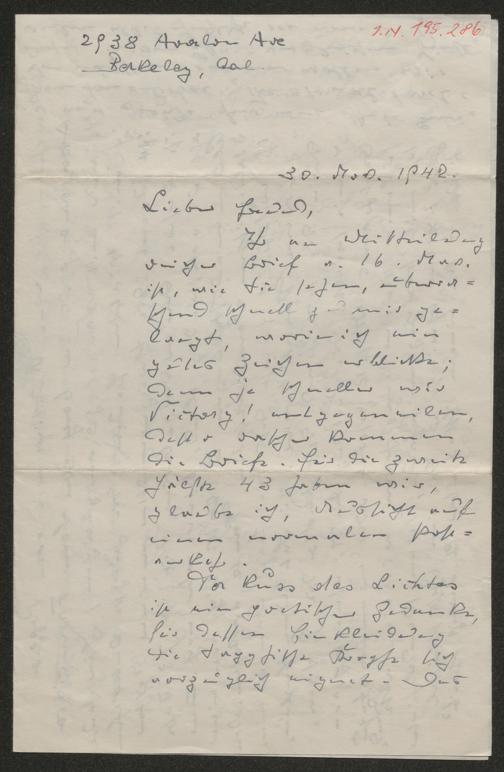 I.N. 195.286
2938 Avalon Ave
Berkeley, Cal.
30. Nov. 1942.
Lieber Freund,
Ihr an Mitteilung
reicher Brief v. 16. Nov.
ist, wie Sie sehen, überra-
schend schnell zu mir ge-
langt, worin ich ein
gutes Zeichen erblicke;
denn je schneller wir
Victory! entgegeneilen,
desto rascher kommen
die Briefe. Für die zweite
Hälfte 43 haben wir,
glaube ich, Aussicht auf
einen normalen Post-
verkehr.
Der Kuss des Lichtes
ist ein poetischer Gedanke,
für dessen Einkleidung
die Strophe sich
vorzüglich eignet. Das